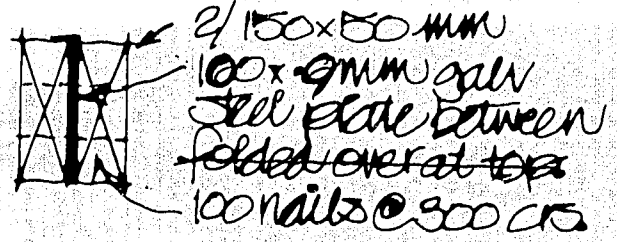 2/150x50 mm
100x.9mm galv
steel plate between
folded over at top.
100 nails @ 300 crs.